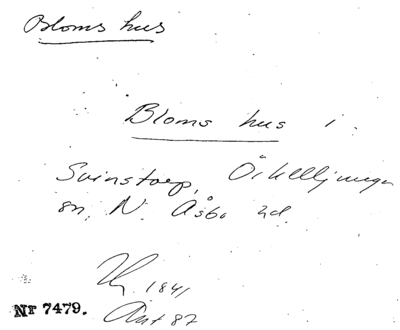 Bloms hus
Bloms hus i
Svinstorp, Örkelljunga
sn, N. Åsbo hd.
1841
Ant 87
Nr 7479.